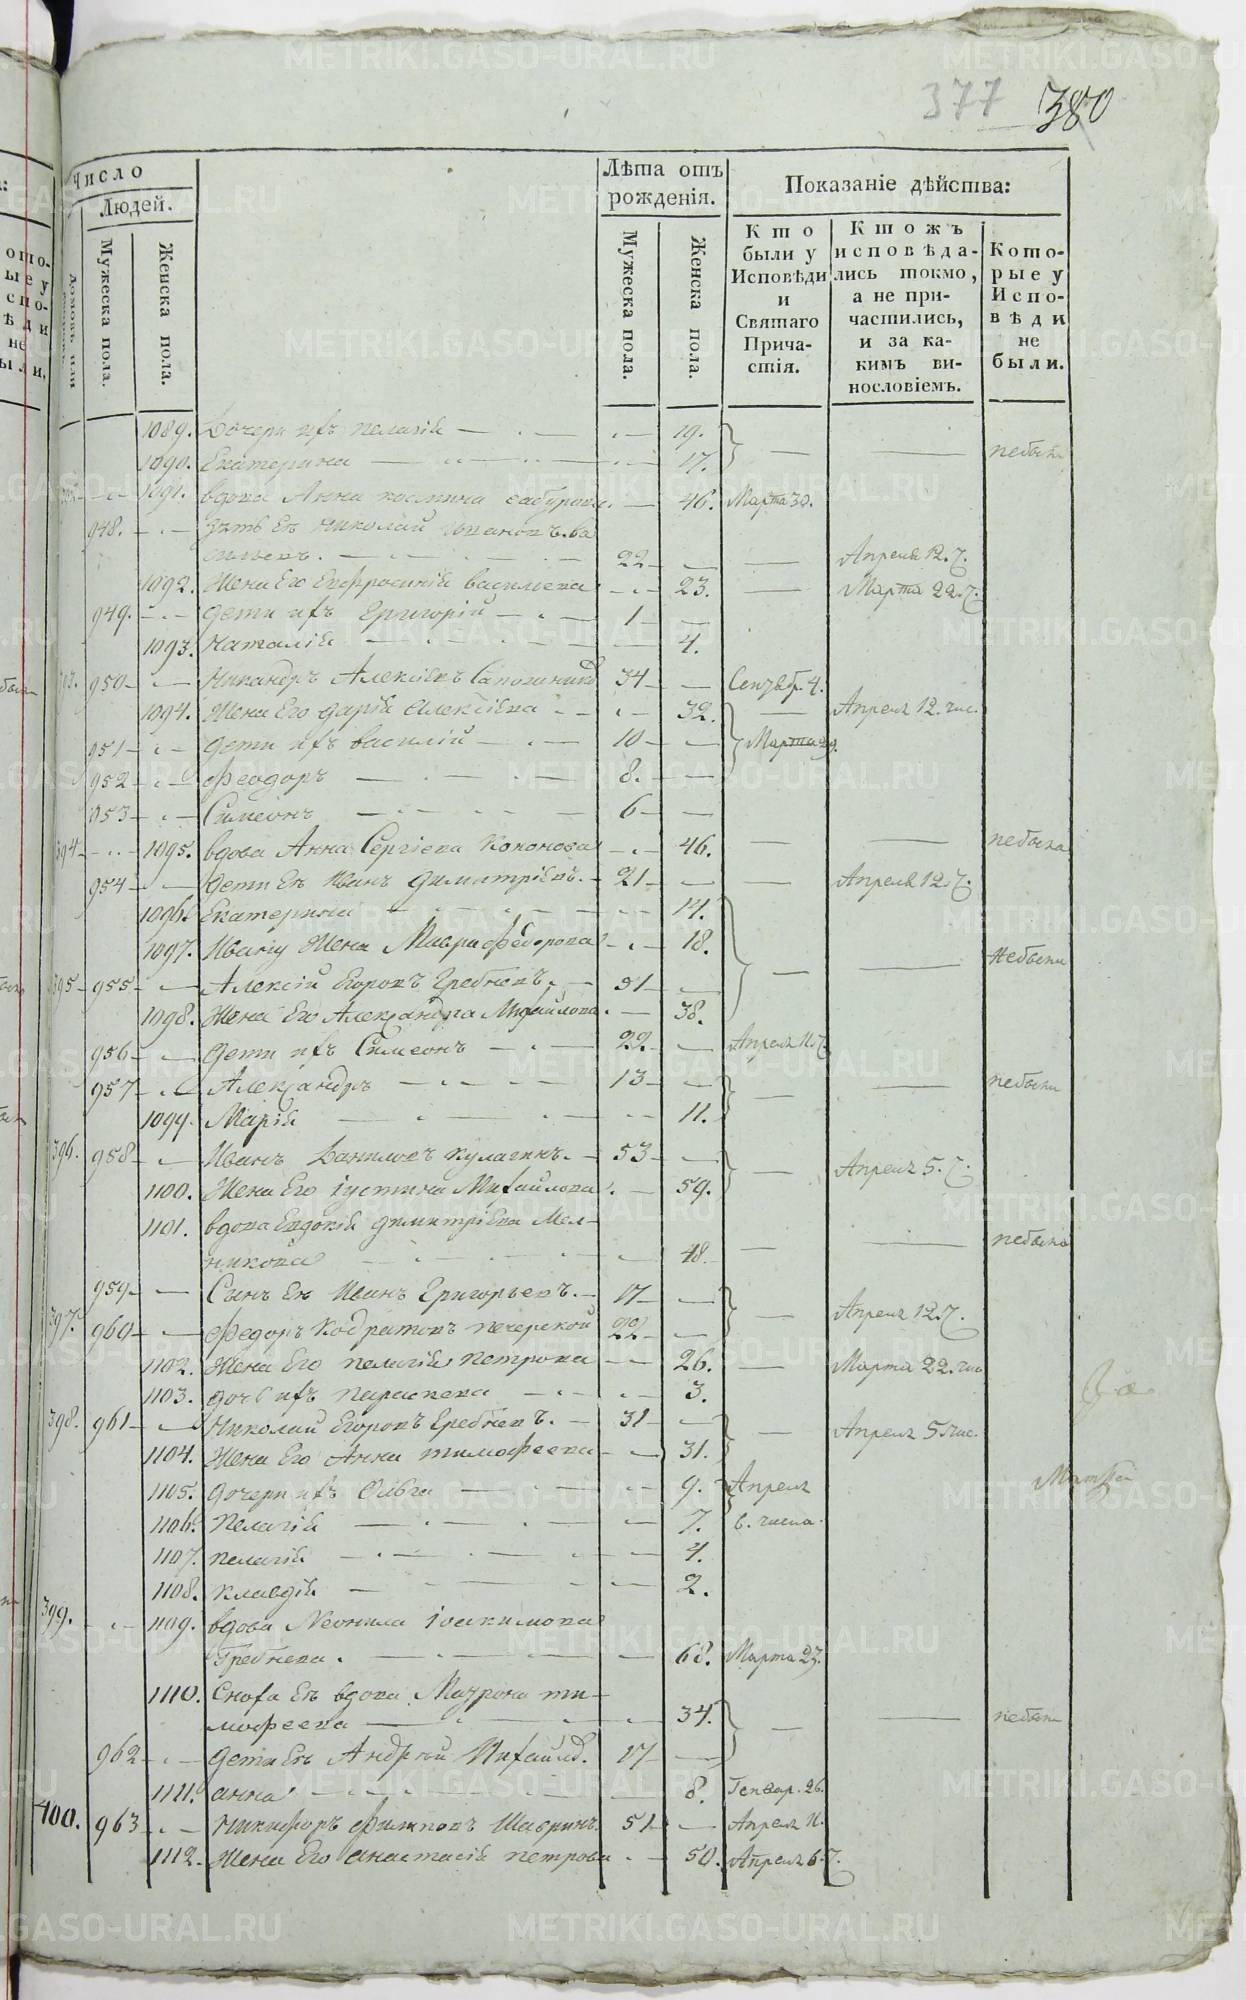 377 380
Число
Людей.
Домовъ или
Мужеска пола.
Женска пола.
Лѣта отъ рожденія.
Мужеска пола.
Женска пола.
Показаніе дѣйства:
Кто были у Исповѣди и Святаго Причастія.
Ктожъ исповѣдались токмо, а не причастились, и за какимъ винословіемъ.
Которые у Исповѣди не были.
1089. Дочери ихъ Пелагія 19.
1090. Екатерина 17. небыли
1091. вдова Анна 46. Марта 30.
948. Зять Ея Николай Ивановъ Ва
сильевъ. 22 Апреля 12. ч.
1092. Жена Его Евфросинія Васильева 23. Марта 22. ч.
949. Дети ихъ Григорій 1
1093. Наталія 4.
950 Никандръ Алексіевъ Сапожник 34 Сентябр. 4.
1094. Жена Его Дарія Алексіева 32. Апреля 12. чис.
951 Дети ихъ Василій 10 Марта 29.
952 Феодоръ 8.
953 Симеонъ 6
394 1095. вдова Анна Сергіева Кононова 46. небыла
954 Дети Ея Иванъ Димитріевъ. 21 Апреля 12. ч.
1096. Екатерина 14.
1097. Ивана Жена Мавра Федорова 18. Небыли
395 955 Алексій Егоровъ Гребневъ. 51
1098. Жена Его Александра Михайлова. 38.
956 Дети ихъ Симеонъ 22 Апреля 11. ч.
957 Александръ 13 небыли
1099. Марія 11.
396. 958 Иванъ Даниловъ Кулагинъ. 53 Апреля 5. ч.
1100. Жена Его Іустина Михайлова 59.
1101. вдова Евдокія Димитріева Мел-
никова 48. небыла
959 Сынъ Ея Иванъ Григорьевъ. 17 Апреля 12. ч.
397. 960 Федоръ Кодратовъ Печерской 22
1102. Жена Его Пелагія Петрова 26. Марта 22. чис
1103. Дочь ихъ Параскева 3.
398. 961 Николай Егоровъ Гребневъ. 31 Апреля 5 чис.
1104. Жена Его Анна Тимофеева 31.
1105. Дочери ихъ Ольга 9. Апреля
1106. Пелагія 7. 6. числа.
1107. Пелагія 4.
1108. Клавдія 2.
399. 1109. вдова Неонила Іоакимова
Гребнева. 68. Марта 23.
1110. Сноха Ея вдова Матрона Ти-
мофеева 34. небыли
962 Дети Ея Андрей Михайлов. 17
1111. Анна 8. Генвар. 26.
400. 963 Никифоръ Филиповъ Шавринъ. 51 Апреля 11.
1112. Жена Его Анастасія Петрова 50. Апреля 6. ч.
METRIKI.GASO-URAL.RU